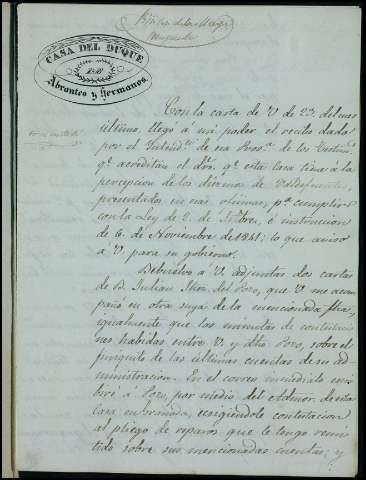 CASA DEL DUQUE
DE
Abrantes y Hermanos
Con la carta de V de 23 del mes
último, llegó á mi poder el recibo dado
por el Intend.te de esa Prov.a de los
q.e acreditan el dro. q.e esta casa tiene á la
percepcion de los diezmos de Valdefuentes,
presentados en esas oficinas, p.a cumplir
con la Ley de 2. de Stbre, é instruccion
de 6. de Noviembre de 1841; lo que aviso
á V. para su gobierno.
Debuelvo a V. adjuntas dos cartas
de D. Julian del Pozo, que V me acom
pañó en otra suya de la mencionada fha,
igualmente que las minutas de contestacio
nes habidas entre V. y dho Pozo, sobre el
finiquito de las últimas cuentas de su ad-
ministracion. En el correo inmediato escri
biré a Pozo, por medio del Admor de esta
casa en Granada, ecsigiendole contestacion
al pliego de reparos que le tengo remi
tido sobre sus mencionadas cuentas; y